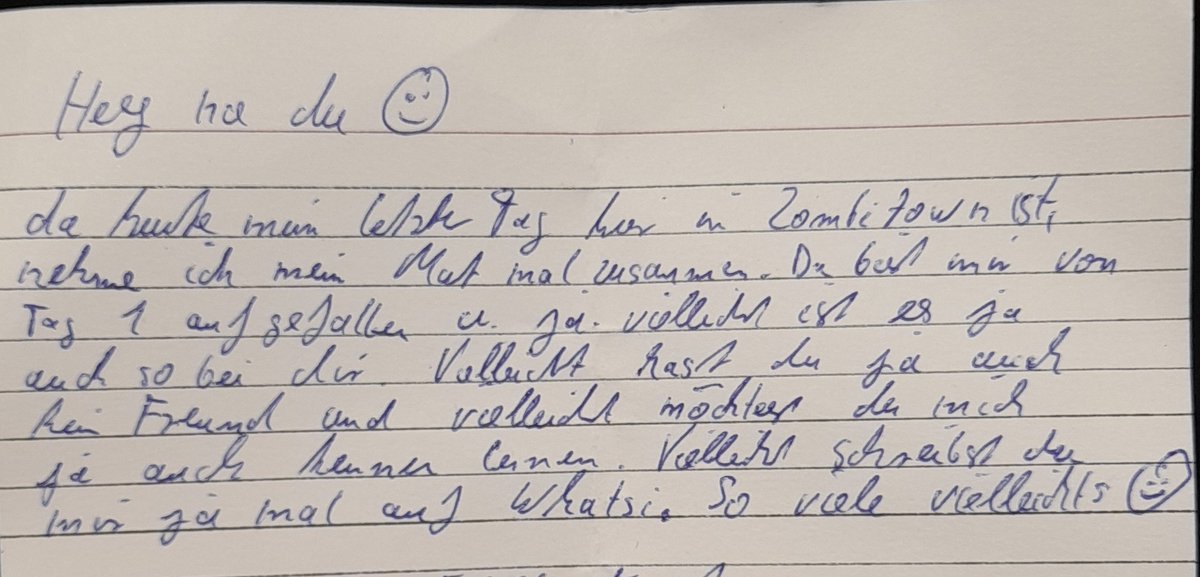 Hey na du
da heute mein letzter Tag hier in Zombitown ist,
nehme ich mein Mut mal zusammen. Du bist mir von
Tag 1 aufgefallen u. ja. vielleicht ist es ja
auch so bei dir. Vielleicht hasst du ja auch
kein Freund und vielleicht möchtest du mich
ja auch kennen lernen. Vielleicht schreibst du
mir ja mal auf Whatsi. So viele vielleichts